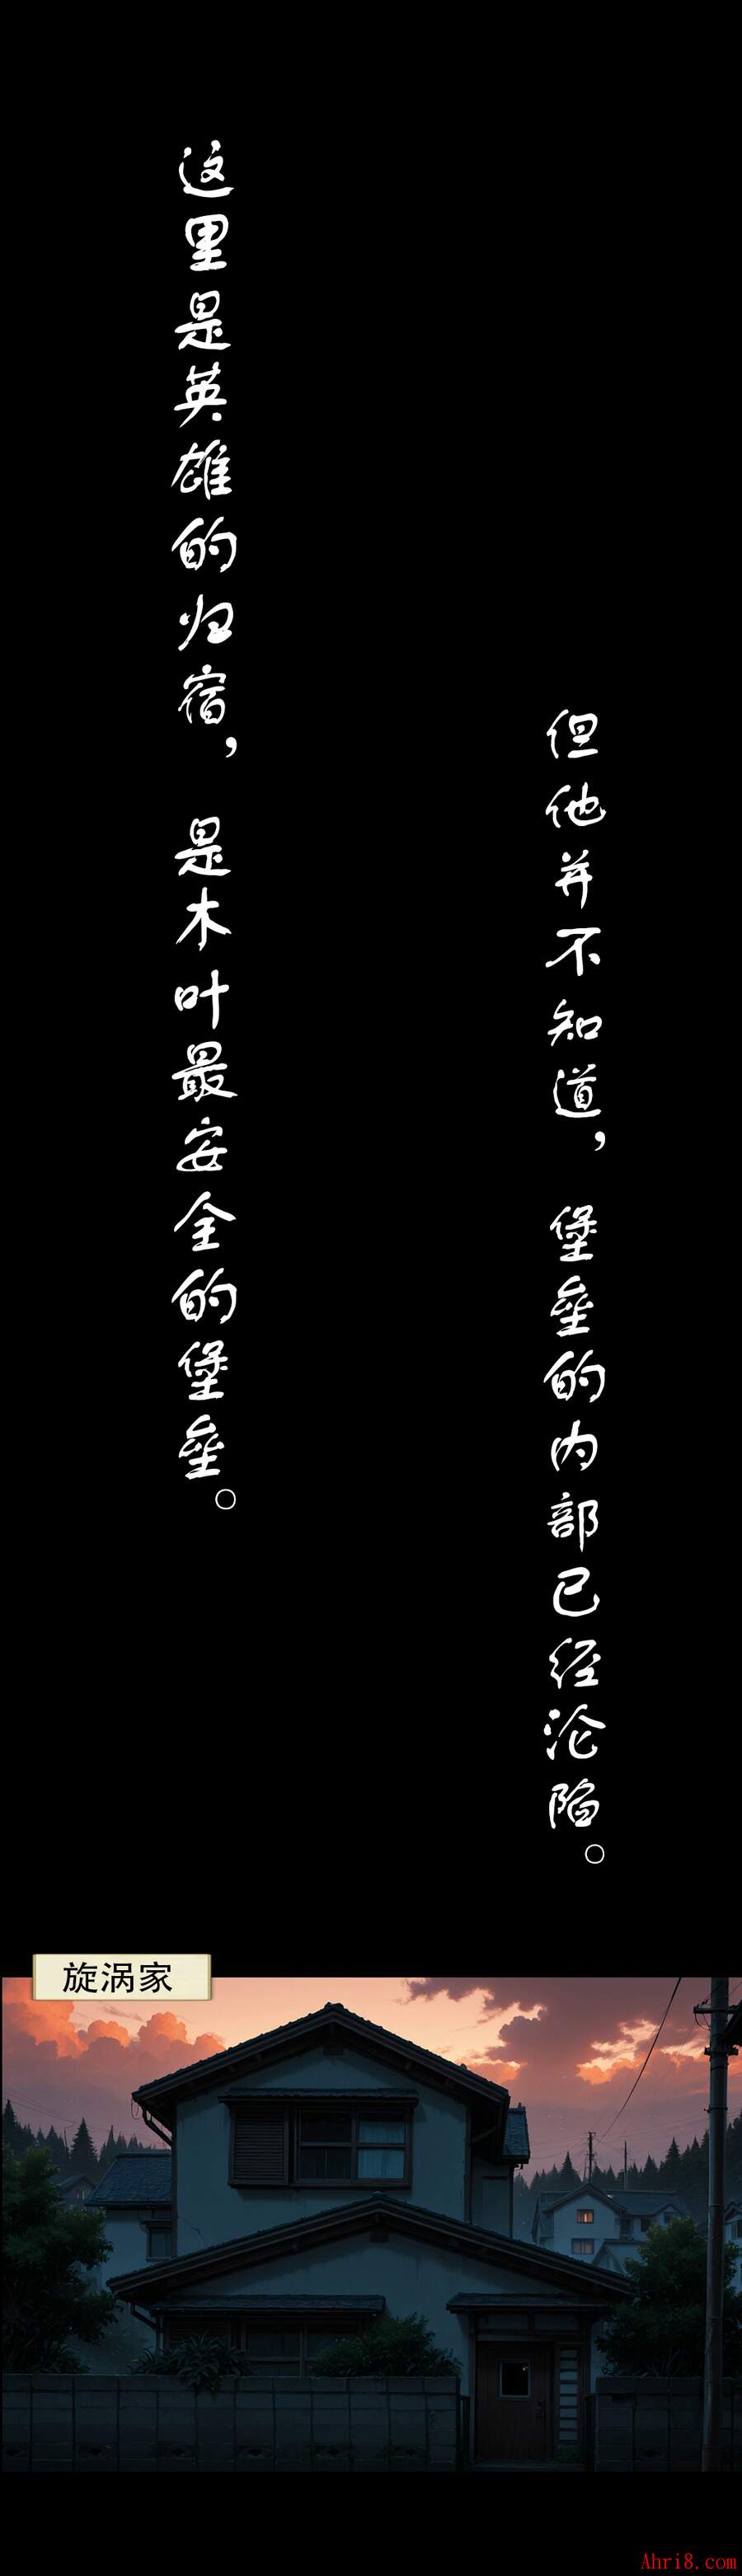 这里是英雄的归宿，是木叶最安全的堡垒。
但他并不知道，堡垒的内部已经沦陷。
旋涡家
Ahri8.com